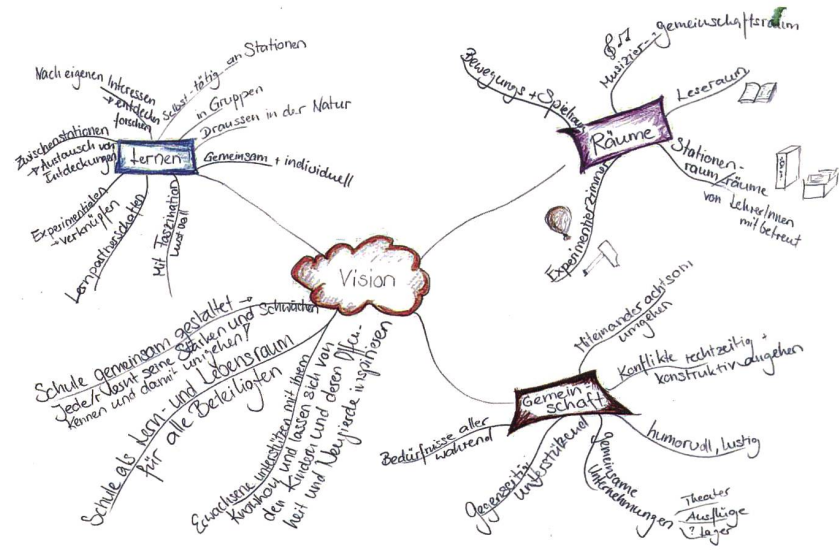 Vision
Lernen
Nach eigenen Interessen
→ entdecken
forschen
Selbst-tätig an Stationen
in Gruppen
Draussen in der Natur
Gemeinsam + individuell
Zwischenstationen
→ Austausch von
Entdeckungen
Experimentieren
→ verknüpfen
Lernpartnerschaften
Mit Faszination
lustvoll
Räume
Bewegungs + Spielraum
Musizier-
gemeinschaftsraum
Leseraum
Stationen-
raum/räume
von LehrerInnen
mitbetreut
Experimentierzimmer
Gemein-
schaft
Miteinander achtsam
umgehen
Konflikte rechtzeitig +
konstruktiv angehen
humorvoll, lustig
gemeinsame
Unternehmungen
Theater
Ausflüge
? Lager
Gegenseitig
unterstützend
Bedürfnisse aller
während
Schule gemeinsam gestaltet →
Jede/r lernt seine Stärken und Schwächen
kennen und damit umgehen!
Schule als Lern- und Lebensraum
für alle Beteiligten
Erwachsene unterstützen mit ihrem
Knowhow und lassen sich von
den Kindern und deren Offen-
heit und Neugierde inspirieren